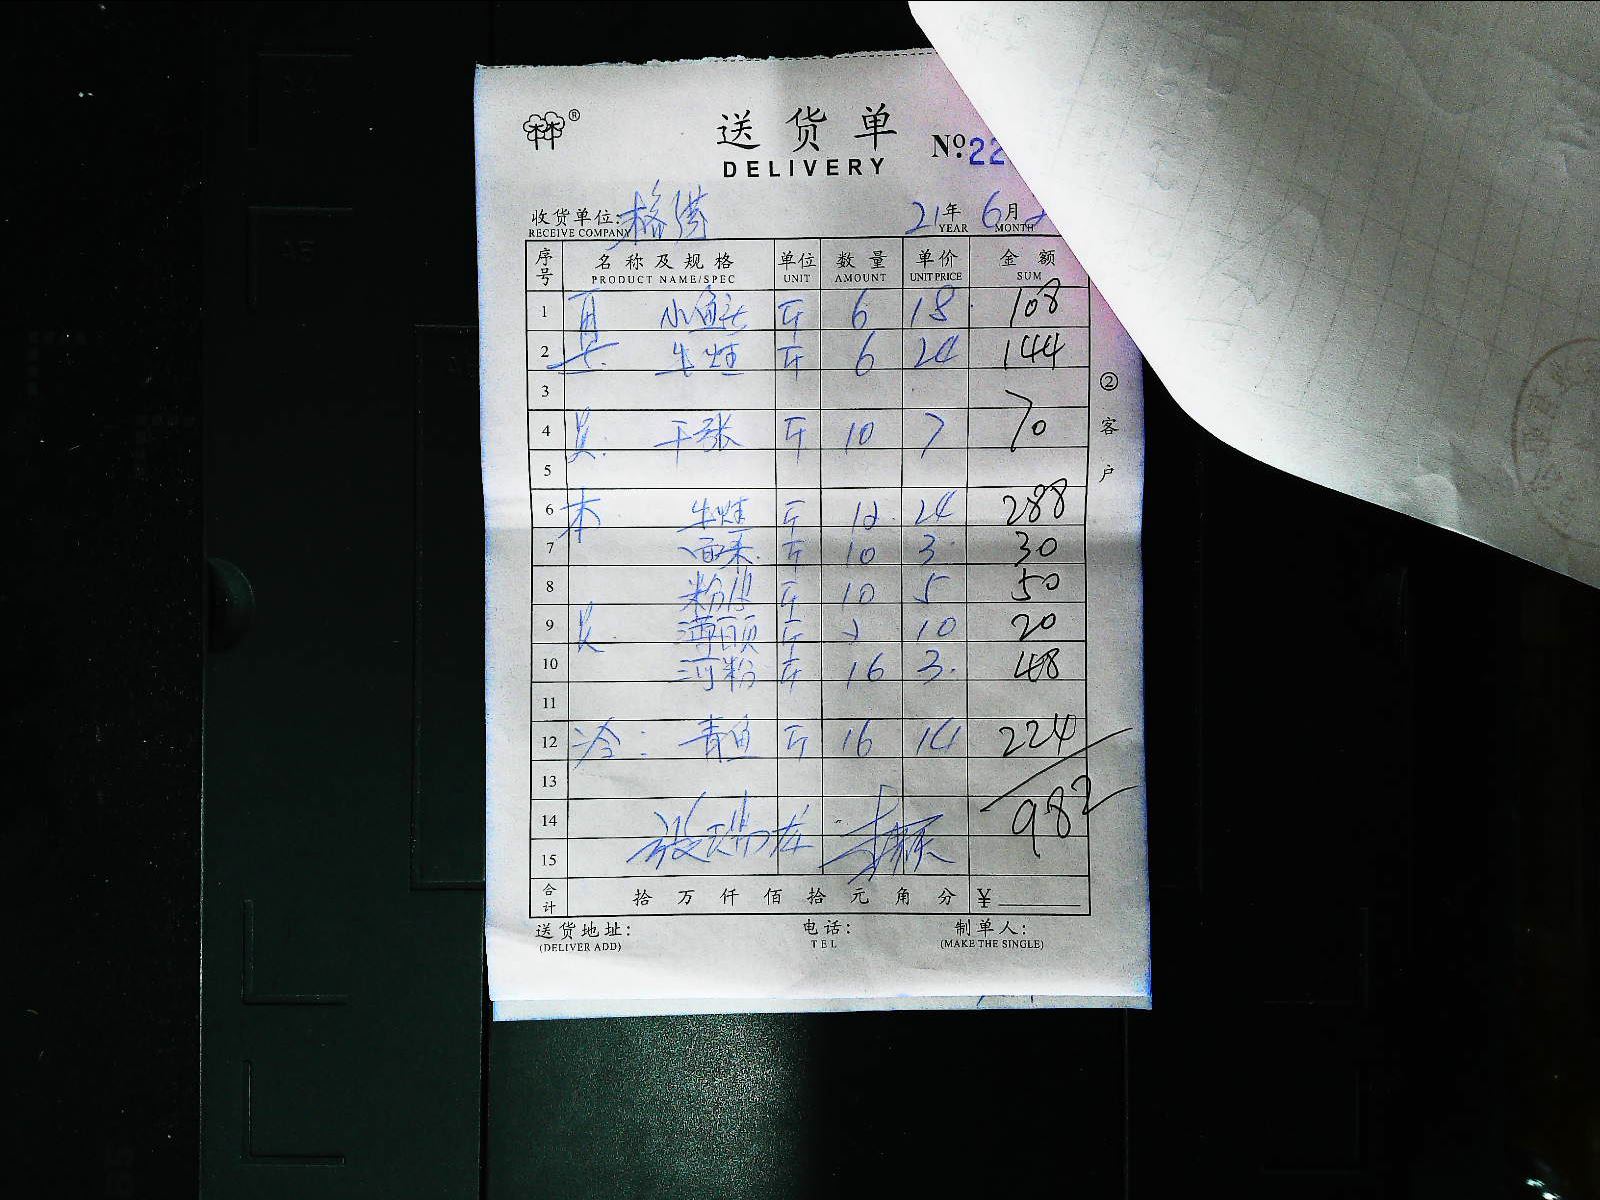 送货单
DELIVERY
№.22
收货单位:
RECEIVE COMPANY
21年 6月
YEAR MONTH
序号 名称及规格 单位 数量 单价 金额
PRODUCT NAME/SPEC UNIT AMOUNT UNIT PRICE SUM
1 小鱼 斤 6 18 108
2 牛 斤 6 24 144
3
4 干张 斤 10 7 70
5
6 本 牛 斤 12 24 288
7 斤 10 3 30
8 粉 斤 10 5 50
9 斤 2 10 20
10 河粉 斤 16 3 48
11
12 冷: 青鱼 斤 16 14 224
13
982
14
15
合计 拾万仟佰拾元角分 ¥
送货地址: 电话: 制单人:
(DELIVER ADD) TEL (MAKE THE SINGLE)
②客户